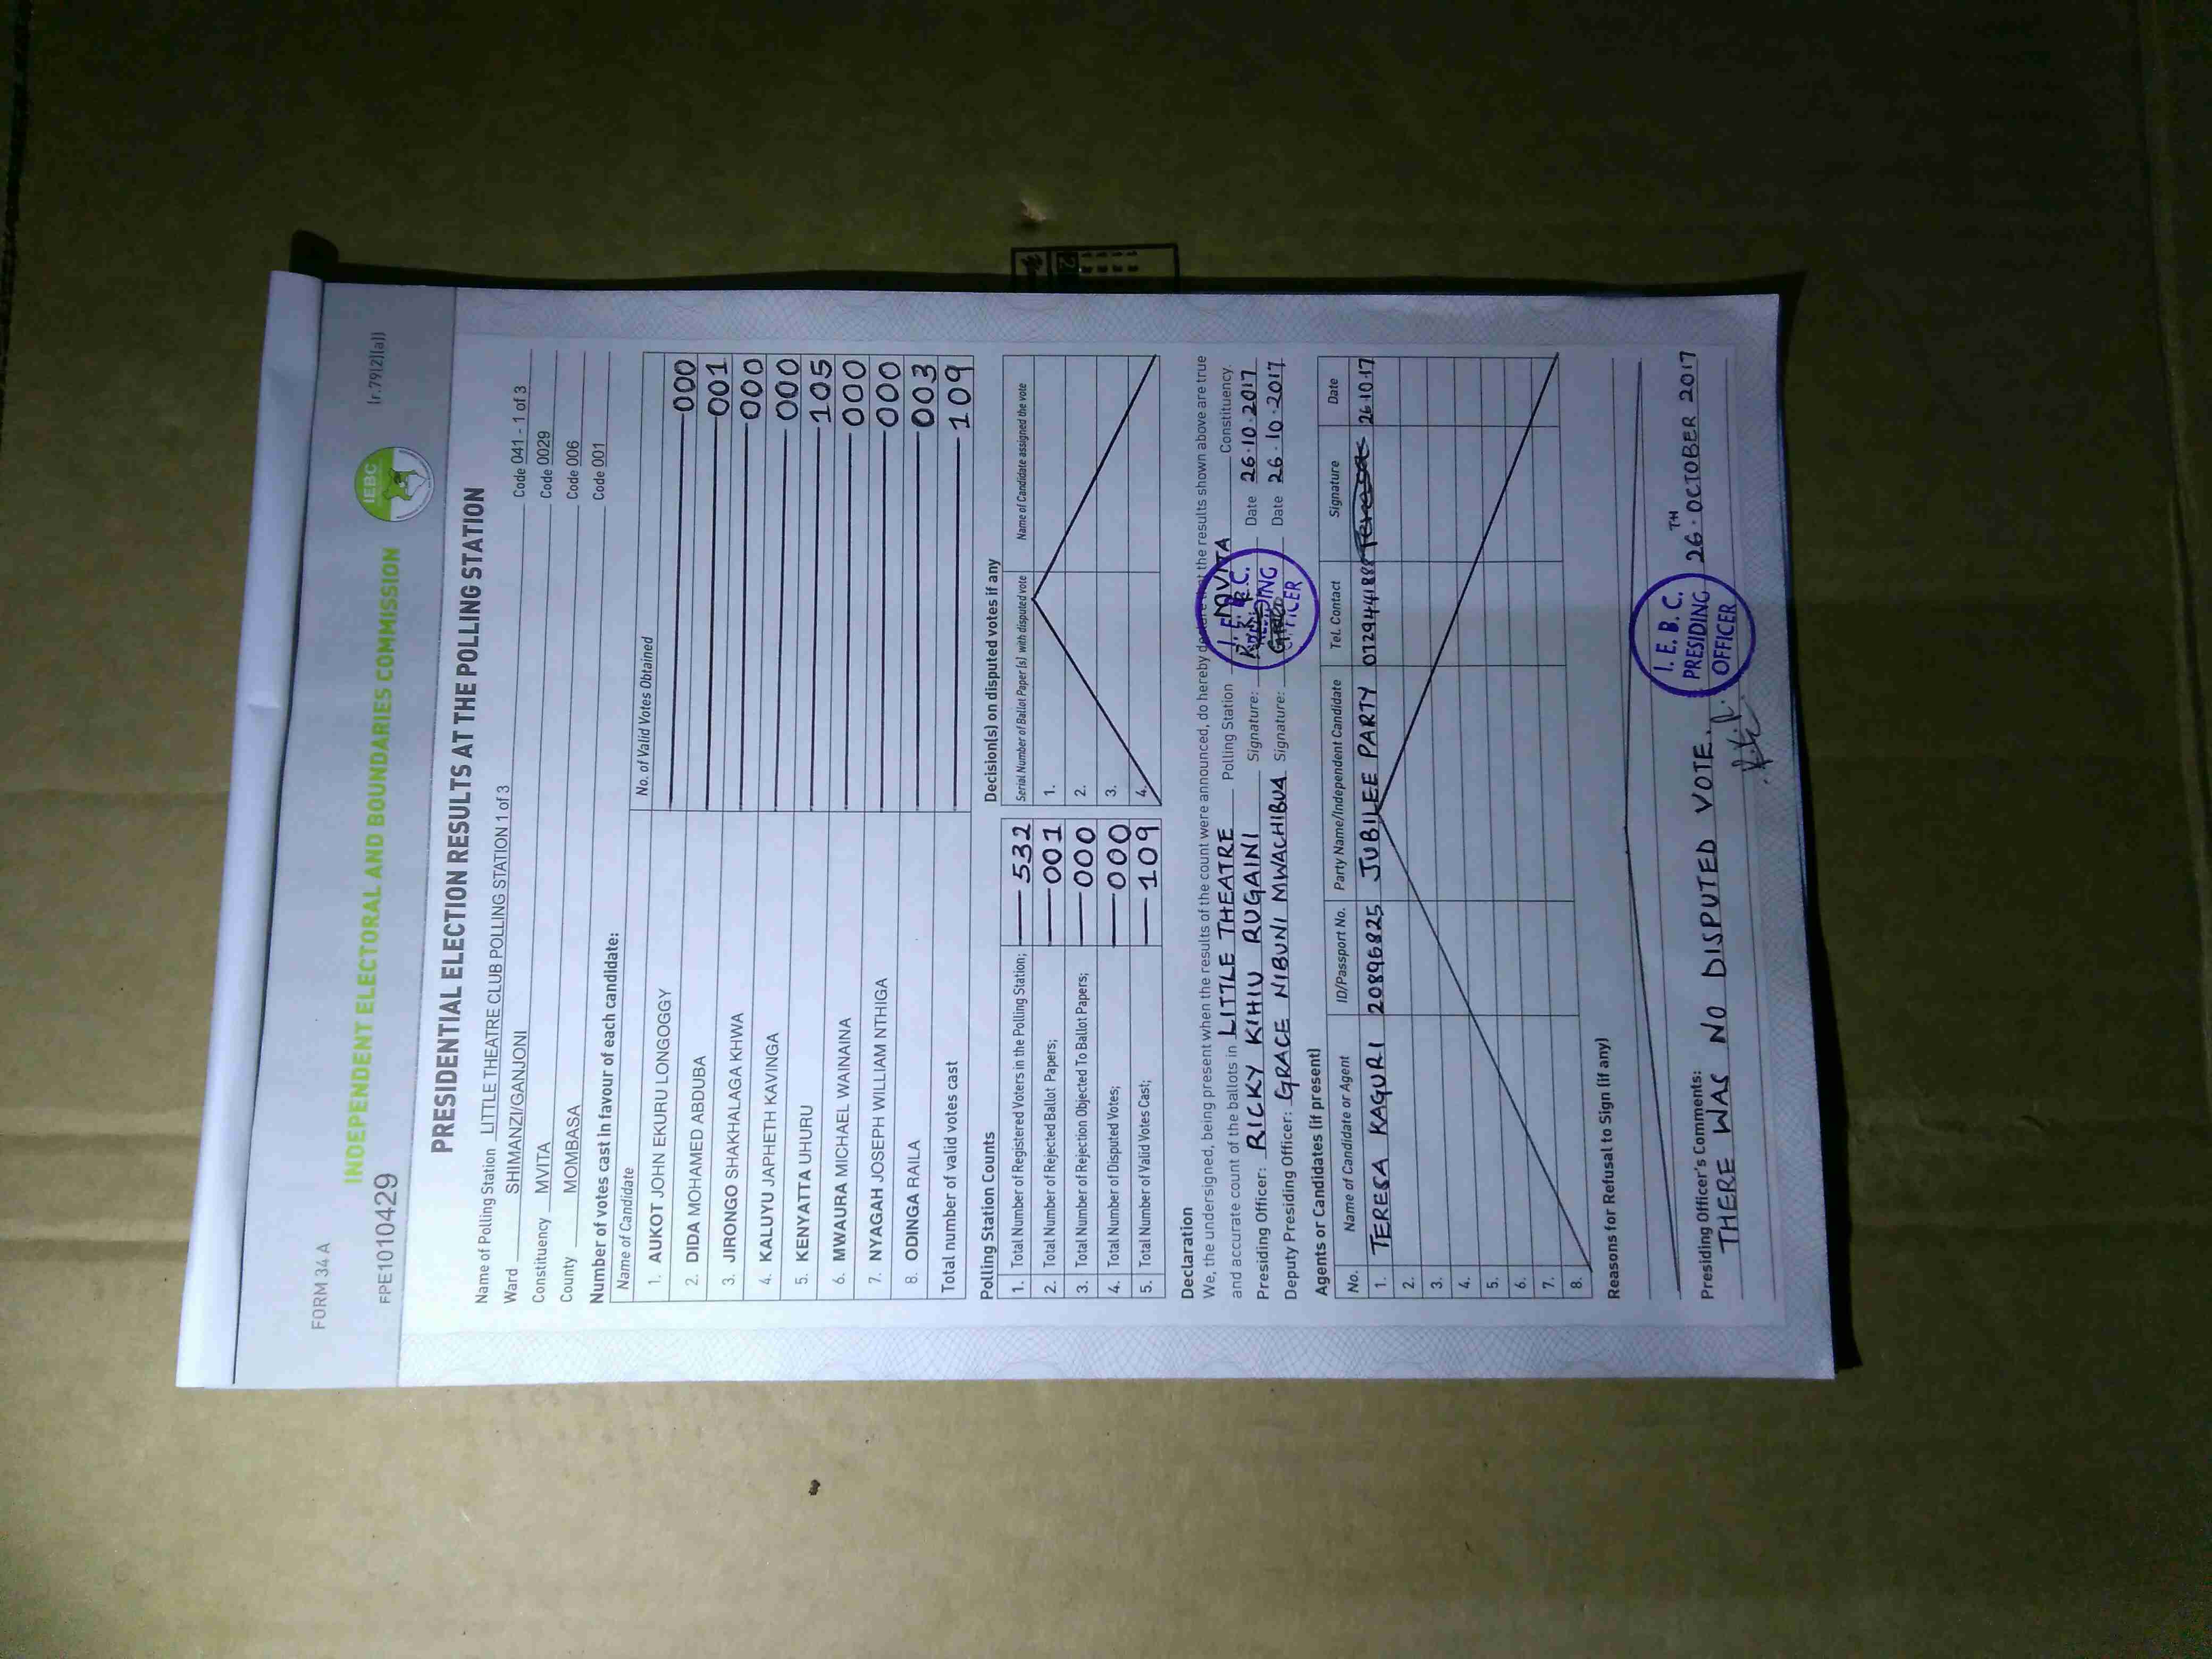 FORM 34 A
(r.79(2)(a))
INDEPENDENT ELECTORAL AND BOUNDARIES COMMISSION
IEBC
FPE1010429
PRESIDENTIAL ELECTION RESULTS AT THE POLLING STATION
Name of Polling Station LITTLE THEATRE CLUB POLLING STATION 1 of 3 Code 041 - 1 of 3
Ward SHIMANZI/GANJONI Code 0029
Constituency MVITA Code 006
County MOMBASA Code 001
Number of votes cast in favour of each candidate:
Name of Candidate No. of Valid Votes Obtained
1. AUKOT JOHN EKURU LONGOGGY 000
2. DIDA MOHAMED ABDUBA 001
3. JIRONGO SHAKHALAGA KHWA 000
4. KALUYU JAPHETH KAVINGA 000
5. KENYATTA UHURU 105
6. MWAURA MICHAEL WAINAINA 000
7. NYAGAH JOSEPH WILLIAM NTHIGA 000
8. ODINGA RAILA 003
Total number of valid votes cast 109
Polling Station Counts
1. Total Number of Registered Voters in the Polling Station; 532
2. Total Number of Rejected Ballot Papers; 001
3. Total Number of Rejection Objected To Ballot Papers; 000
4. Total Number of Disputed Votes; 000
5. Total Number of Valid Votes Cast; 109
Decision(s) on disputed votes if any
Serial Number of Ballot Paper (s) with disputed vote Name of Candidate assigned the vote
1.
2.
3.
4.
Declaration
We, the undersigned, being present when the results of the count were announced, do hereby declare that the results shown above are true
and accurate count of the ballots in LITTLE THEATRE Polling Station MVITA Constituency.
Presiding Officer: RICKY KIHIU RUGAINI Signature: Date 26.10.2017
Deputy Presiding Officer: GRACE NIBUNI MWACHIBUA Signature: Date 26.10.2017
I. E. B. C.
PRESIDING
OFFICER
Agents or Candidates (if present)
No. Name of Candidate or Agent ID/Passport No. Party Name/Independent Candidate Tel. Contact Signature Date
1. TERESA KAGURI 20896825 JUBILEE PARTY Teresa 26.10.17
2.
3.
4.
5.
6.
7.
8.
Reasons for Refusal to Sign (if any)
Presiding Officer's Comments:
THERE WAS NO DISPUTED VOTE. 26TH OCTOBER 2017
I. E. B. C.
PRESIDING
OFFICER